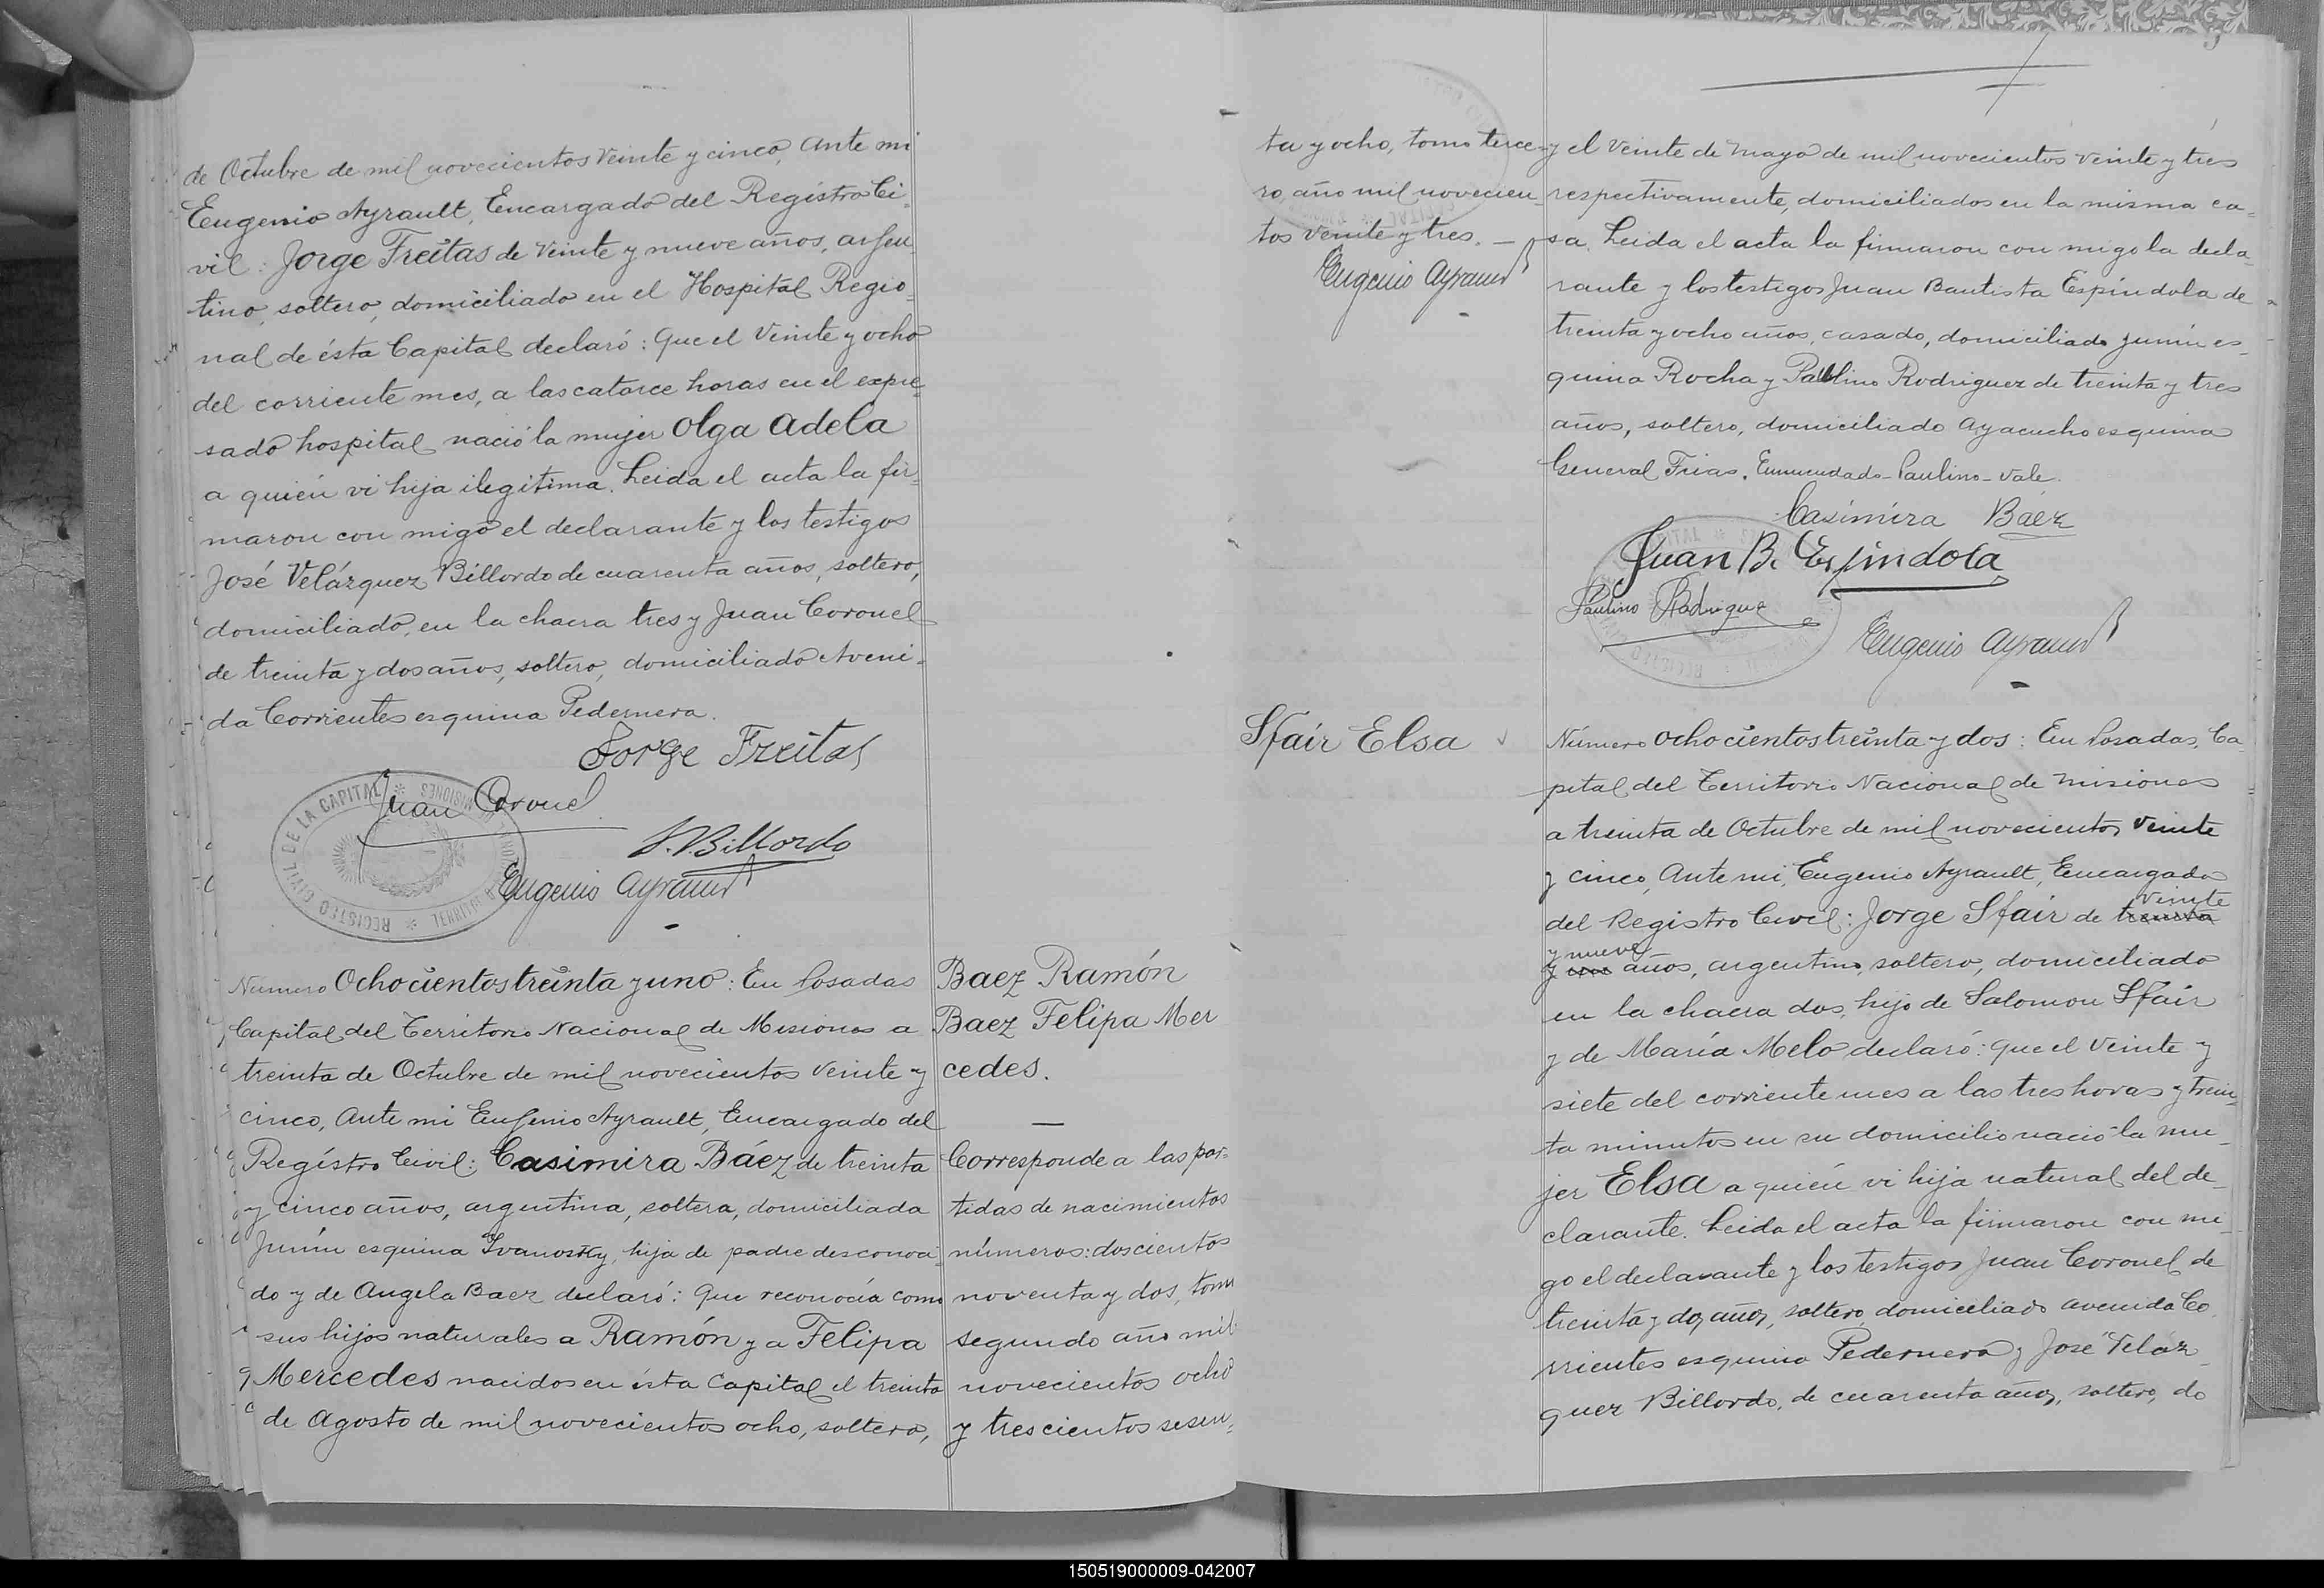 de Octubre de mil novecientos veinte y cinco, ante mi
Eugenio Ayrault, Encargado del Registro Ci-
vil: Jorge Freitas de veinte y nueve años, argen-
tino, soltero, domiciliado en el Hospital Regio-
nal de ésta Capital declaró: Que el veinte y ocho
del corriente mes, a las catorce horas en el expre-
sado hospital nació la mujer Olga Adela
a quién vi hija ilegitima. Leida el acta la fir-
maron con migo el declarante y los testigos
José Velázquez Billordo de cuarenta años, soltero,
domiciliado, en la chacra tres y Juan Coronel
de treinta y dos años, soltero, domiciliado Aveni-
da Corrientes esquina Pedernera.
Jorge Freitas
Juan Coronel
J.V. Billordo
REGISTRO CIVIL DE LA CAPITAL
Eugenio Ayrault
Número Ochocientos treinta y uno: En Posadas
Capital del Territorio Nacional de Misiones a
treinta de Octubre de mil novecientos veinte y
cinco, Ante mi Eugenio Ayrault, Encargado del
Registro Civil: Casimira Báez de treinta
y cinco años, argentina, soltera, domiciliada
Junín esquina Ivanosky, hija de padre desconoci-
do y de Angela Baez declaró: Que reconocía como
sus hijos naturales a Ramón y a Felipa
Mercedes nacidos en ésta Capital el treinta
de Agosto de mil novecientos ocho, soltero,
Baez Ramón
Baez Felipa Mer
cedes.
Corresponde a las par-
tidas de nacimientos
números: doscientos
noventa y dos, tomo
segundo año mil
novecientos ocho
y trescientos sesen-
ta y ocho, tomo terce-
ro, año mil novecien-
tos veinte y tres. —
Eugenio Ayrault
y el veinte de Mayo de mil novecientos veinte y tres
respectivamente, domiciliados en la misma ca-
sa. Leida el acta la firmaron con migo la decla-
rante y los testigos Juan Bautista Espíndola de
treinta y ocho años, casado, domiciliado Junín es-
quina Rocha y Paulino Rodriguez de treinta y tres
años, soltero, domiciliado Ayacucho esquina
General Frias. Enmendado-Paulino-Vale.
Casimira Báez
Juan B. Espindola
Paulino Rodriguez
Eugenio Ayrault
Sfair Elsa
Número ochocientos treinta y dos: En Posadas, Ca-
pital del Territorio Nacional de Misiones
a treinta de Octubre de mil novecientos veinte
y cinco, Ante mi, Eugenio Ayrault, Encargado
del Registro Civil: Jorge Sfair de treinta veinte
y uno y nueve años, argentino, soltero, domiciliado
en la chacra dos, hijo de Salomon Sfair
y de María Melo declaró: que el veinte y
siete del corriente mes a las tres horas y trein-
ta minutos en su domicilio nació la mu-
jer Elsa a quién vi hija natural del de-
clarante. Leida el acta la firmaron con mi-
go el declarante y los testigos Juan Coronel de
treinta y dos años, soltero, domiciliado avenida Co-
rrientes esquina Pedernera y José Veláz-
quez Billordo, de cuarenta años, soltero, do
150519000009-042007